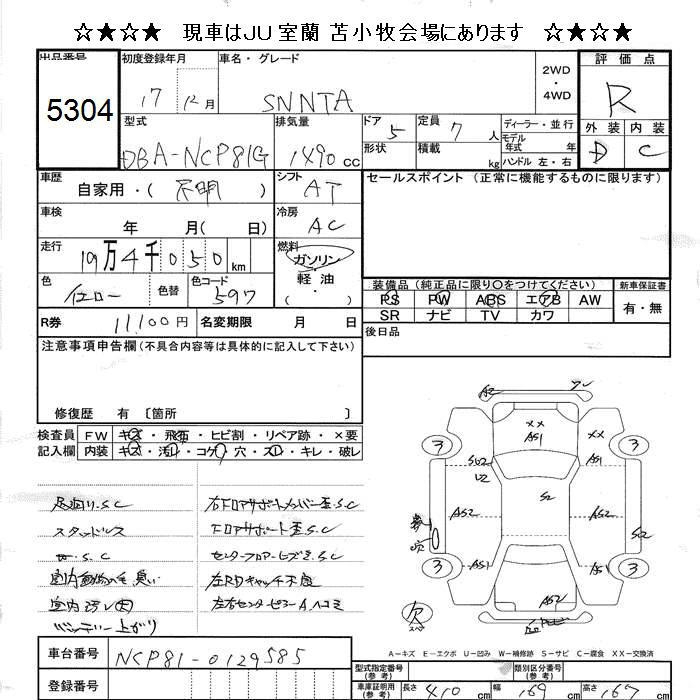 ☆★☆★ 現車はJU室蘭 苫小牧会場にあります ☆★☆★
出品番号 5304
初度登録年月 17 年 12月
車名・グレード SNNTA
2WD ・ 4WD
評価点 R
外装 D 内装 C
型式 DBA-NCP81G
排気量 1490 cc
ドア 5 形状
定員 7 人 積載 kg
ディーラー・並行
モデル年式 年
ハンドル 左・右
車歴 自家用・( 不明 )
シフト AT
セールスポイント(正常に機能するものに限ります)
車検 年 月( 日)
冷房 AC
走行 19万4千050 km
燃料 ガソリン・軽油・
色 イエロー 色替 色コード 597
装備品(純正品に限り○をつけてください) 新車保証書
PS PW ABS エアB AW 有・無
SR ナビ TV カワ
R券 11,100円 名変期限 月 日
後日品
注意事項申告欄(不具合内容等は具体的に記入して下さい)
修復歴 有〔箇所 〕
検査員 FW キズ・飛石・ヒビ割・リペア跡・×要
記入欄 内装 キズ・汚レ・コゲ・穴・スレ・キレ・破レ
足回り.S.C
スタッドレス
室内汚レ大
バッテリー上がり
右フロアサポートメンバー歪.S.C
フロアサポート歪.S.C
センターフロアーヒズミ.S.C
左右センターピラーA.ヘコミ
A2
XX AS1 XX AS1
3 3
SU2 U2
S2
AS2 AS2 S2
穴
AS1 AS1
3 3
欠 スペア
A-キズ E-エクボ U-凹み W-補修跡 S-サビ C-腐食 XX-交換済
車台番号 NCP81-0129585
登録番号
型式指定番号(参考) 類別区分番号(参考)
車庫証明用(参考) 長さ 410 cm 幅 169 cm 高さ 167 cm